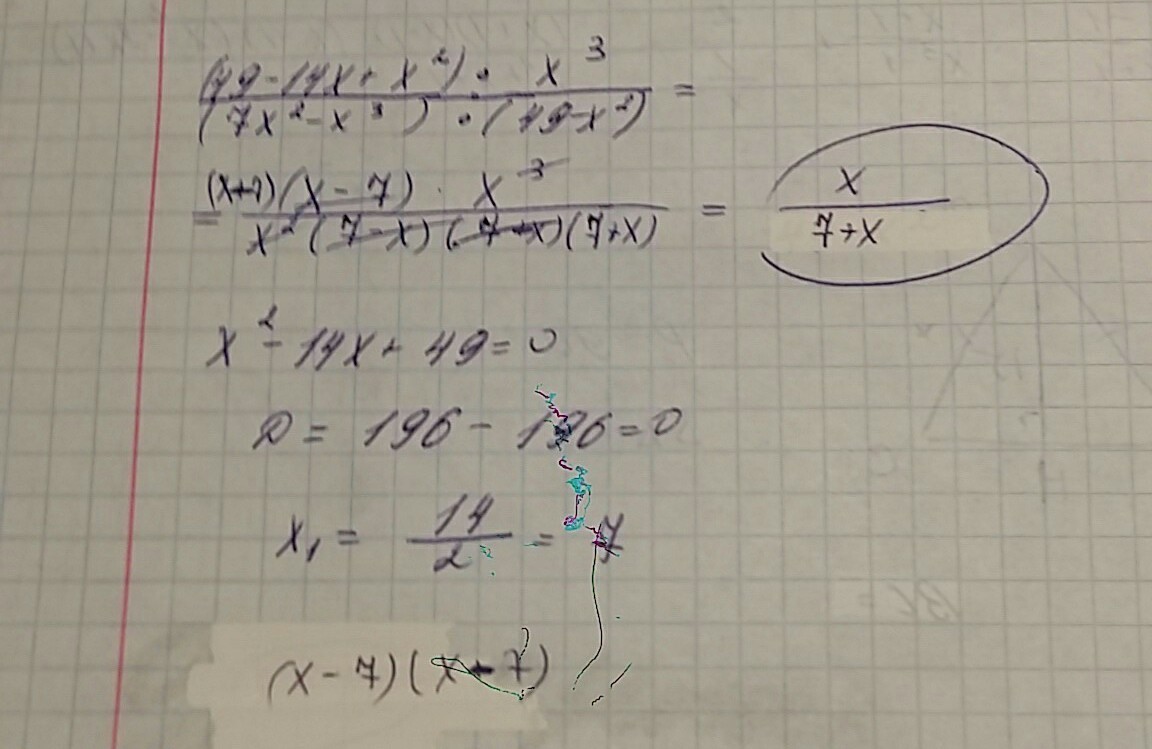 (49-14x+x²)·x³ / (7x²-x³)·(49-x²) =
= (x+7)(x-7)·x³ / x²(7-x)(7-x)(7+x) = x / 7+x
x²-14x+49=0
D = 196-196=0
x₁ = 14/2 = 7
(x-7)(x+7)